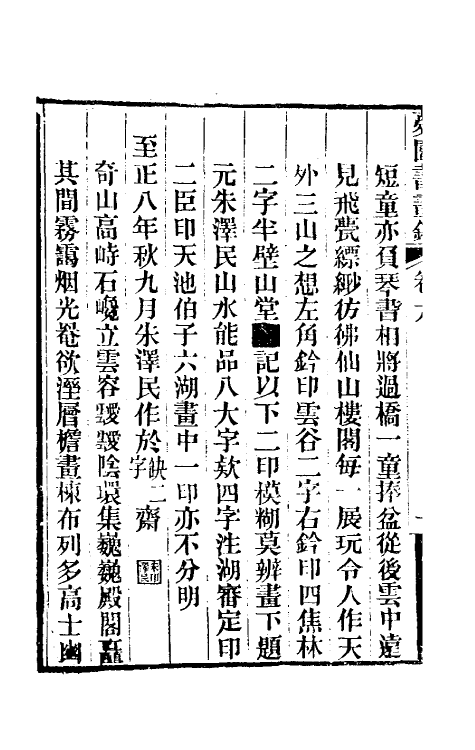 短童亦負琴書相將過橋一童捧盆從後雲中遠
見飛甍縹緲彷彿仙山樓閣每一展玩令人作天
外三山之想左角鈐印雲谷二字右鈐印四焦林
二字半壁山堂記以下二印模糊莫辨畫下題
元朱澤民山水能品八大字欵四字泩湖審定印
二臣印天池伯子六湖畫中一印亦不分明
至正八年秋九月朱澤民作於缺二字齋
奇山高峙石巉立雲容靉靉陰環集巍巍殿閣矗
其間霧靄烟光卷欲溼層檐畫棟布列多高士幽